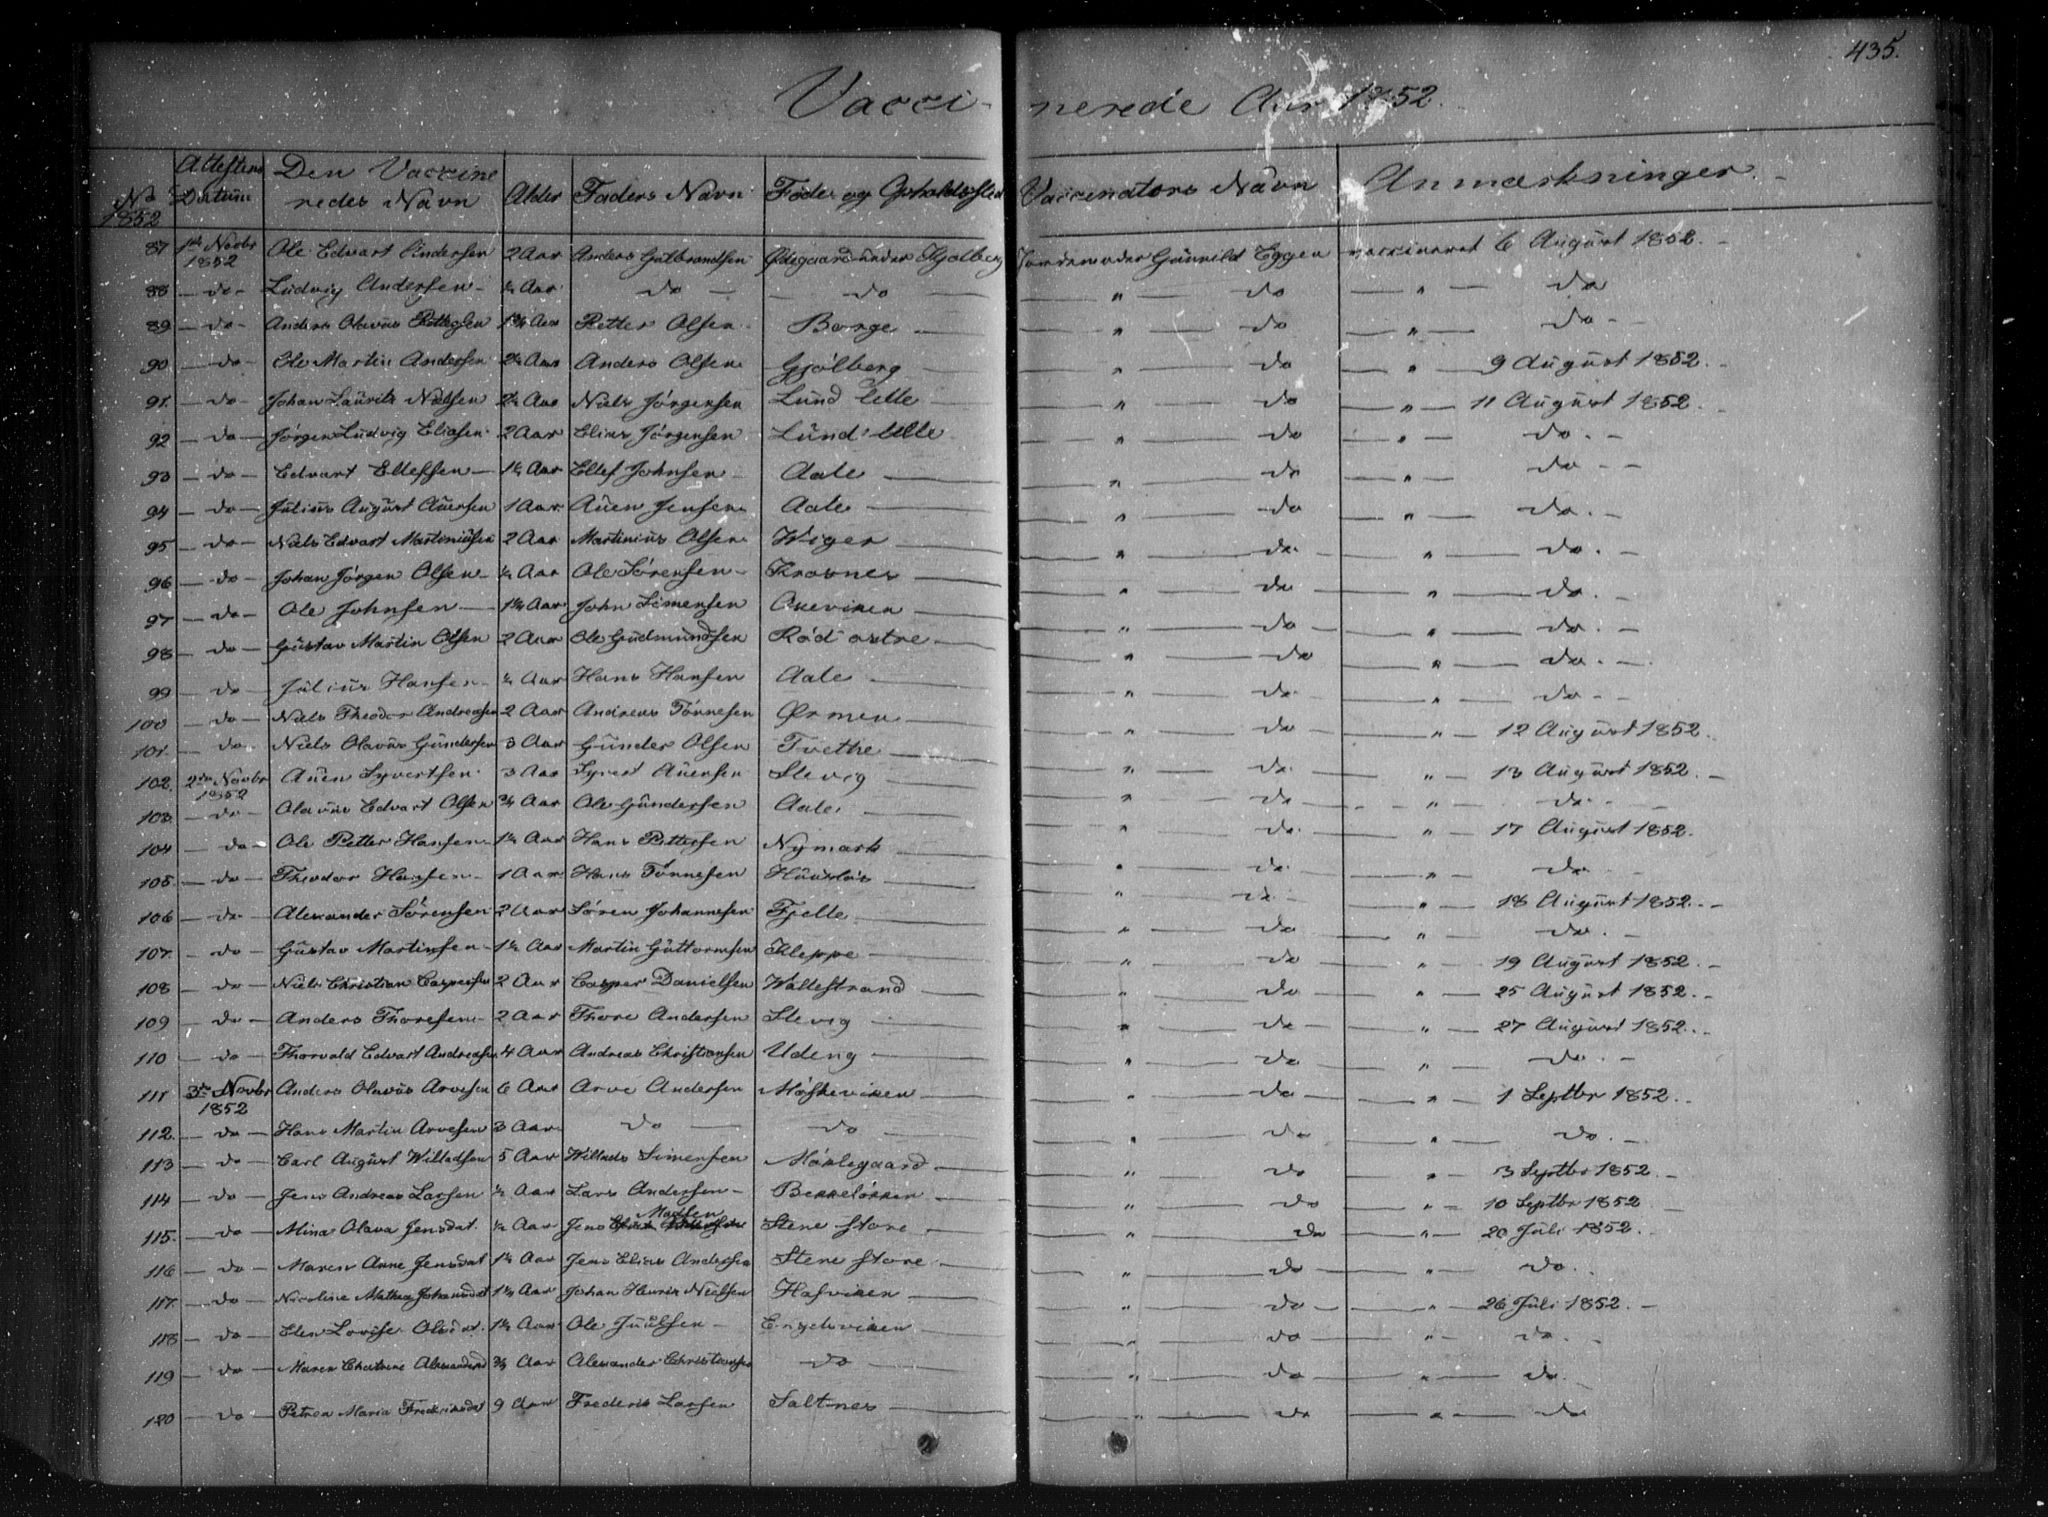 435.
Vaccinerede Aar 1852.
No 1852 Attestens Datum Den Vaccineredes Navn Alder Faders Navn Føde- og Opholdssted Vaccinators Navn Anmærkninger.
87 1ste Novbr 1852 Ole Edvart Andersen 2 Aar Anders Gulbrandsen Ødegaard under Kjølberg Jordemoder Gunnild Eggen vaccineret 6 August 1852.
88 — do — Ludvig Andersen ½ Aar do do " do " do
89 — do — Anders Olavus Pettersen Aar Petter Olsen Borge " do " do
90 — do — Ole Martin Andersen Aar Anders Olsen Gjølberg " do " 9 August 1852.
91. — do — Johan Lauritz Nielsen Aar Niels Jørgensen Lund lille " do " 11 August 1852.
92 — do — Jørgen Ludvig Eliasen 2 Aar Elias Jørgensen Lund lille " do " do.
93 — do — Edvart Ellefsen 1½ Aar Ellef Johnsen Aale " do " do
94 — do — Julius August Auensen 1 Aar Auen Jensen Aale " do " do.
95 — do — Niels Edvart Martiniusen 2 Aar Martinius Olsen Wiger " do " do.
96 — do — Johan Jørgen Olsen ½ Aar Ole Sørensen Krosnes " do " do.
97 — do — Ole Johnsen Aar John Simensen " do " do.
98 — do — Gustav Martin Olsen 2 Aar Ole Gudmundsen Rød østre " do " do.
99 — do — Julius Hansen ½ Aar Hans Hansen Aale " do " do
100 — do — Niels Theodor Andreasen 2 Aar Andreas Tønnesen Ørmen " do " 12 August 1852.
101. — do — Niels Olavus Gundersen 3 Aar Gunder Olsen Tvethe " do " 13 August 1852.
102. 2den Novbr 1852 Auen Syvertsen 3 Aar Syvert Auensen Slevig " do " do.
103. — do — Olavus Edvart Olsen ¾ Aar Ole Gundersen Aale " do " 17 August 1852.
104 — do — Ole Petter Hansen 1½ Aar Hans Pettersen Nymark " do " do
105. — do — Theodor Hansen 1 Aar Hans Tønnesen Huusløs " do " 18 August 1852.
106 — do — Alexander Sørensen 2 Aar Søren Johannesen Fjelle " do " do.
107. — do — Gustav Martinsen 1½ Aar Martin Guttormsen Kleppe " do " 19 August 1852.
108 — do — Niels Christian Caspersen 2 Aar Casper Danielsen Wallestrand " do " 25 August 1852.
109 — do — Anders Thoresen 2 Aar Thore Andersen Slevig " do " 27 August 1852.
110 — do — Thorvald Edvart Andreasen 4 Aar Andreas Christiansen Udeng " do " do.
111 3die Novbr 1852 Anders Olavus Arvesen 6 Aar Arve Andersen Møskeviken " do " 1 Septbr 1852.
112. — do — Hans Martin Arvesen 3 Aar do do " do " do.
113 — do — Carl August Willadsen 5 Aar Willads Simensen Mørlegaard " do " 3 Septbr 1852.
114 — do — Jens Andreas Larsen ½ Aar Lars Andersen Bekkeløkken " do " 10 Septbr 1852
115. — do — Mina Olava Jensdat. ½ Aar Jens Madsen Stene store " do " 20 Juli 1852.
116 — do — Maren Anne Jensdat 1½ Aar Jens Elias Andersen Stene store " do " do.
117. — do — Nicoline Mathea Johansdat 1½ Aar Johan Henrik Nielsen Hasviken " do " 26 Juli 1852.
118 — do — Elen Lovise Olsdat. 1½ Aar Ole Juulsen Engelsviken " do " do.
119 — do — Maren Chatrine Alexandersd ¾ Aar Alexander Christiansen do " do " do.
120 — do — Petrea Maria Frederiksdat 9 Aar Frederik Larsen Saltnes " do " do